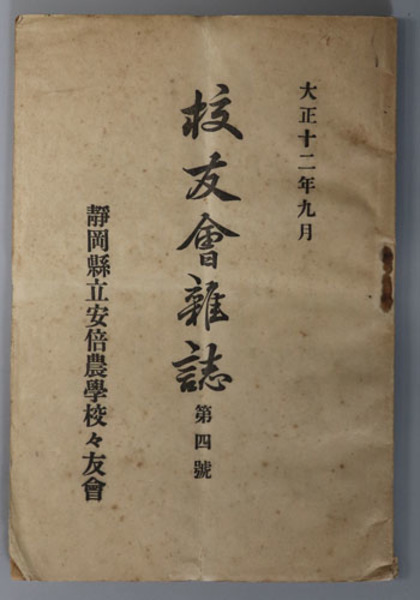 大正十二年九月
校友會雜誌
第四號
靜岡縣立安倍農學校々友會